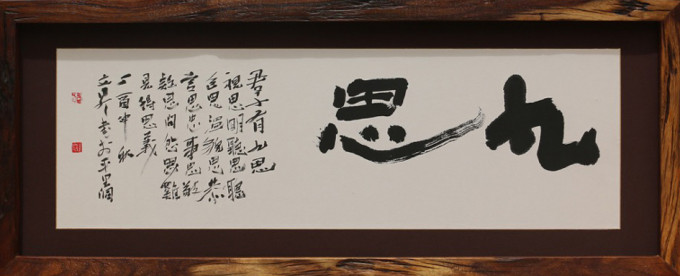 九思
君子有九思
視思明聽思聰
色思溫貌思恭
言思忠事思敬
疑思問忿思難
見得思義
丁酉中秋
書於